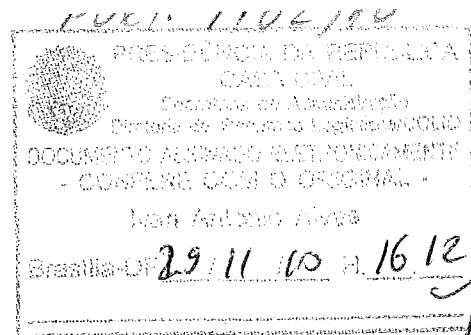 PRESIDÊNCIA DA REPÚBLICA
CASA CIVIL
Secretaria de Administração
Diretoria de Recursos Logísticos/COLIC
DOCUMENTO ASSINADO ELETRONICAMENTE
- CONFERE COM O ORIGINAL -
Ivan Antonio Alves
Brasília-DF 29/11/10 H. 16 12